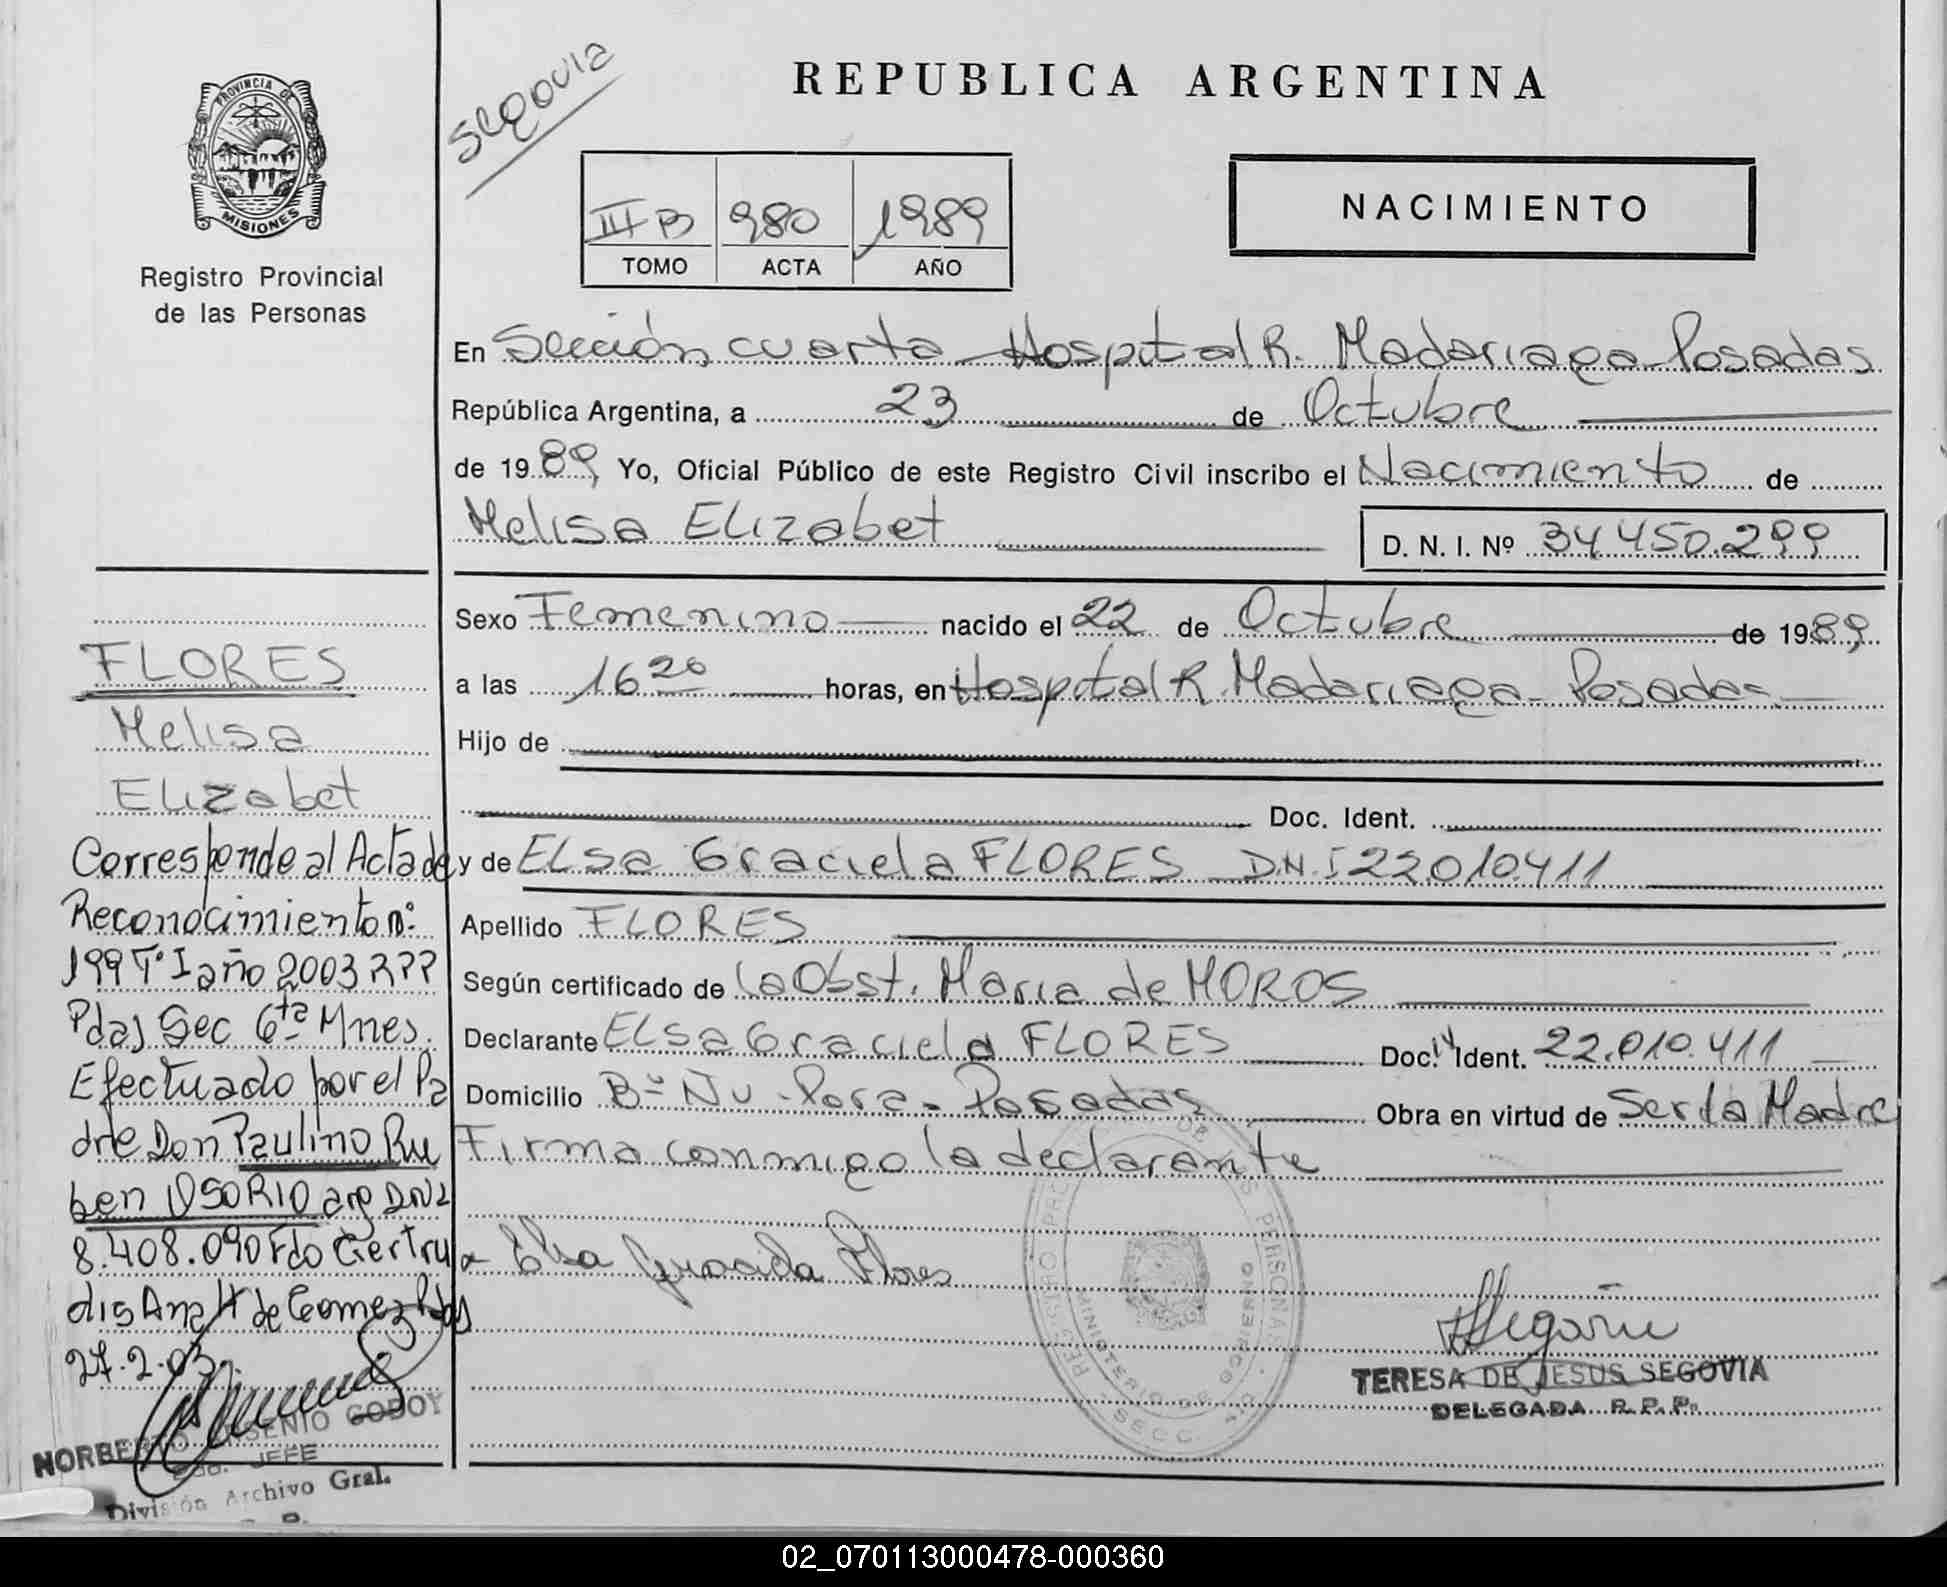 PROVINCIA DE
MISIONES
Registro Provincial
de las Personas
Segovia
REPUBLICA ARGENTINA
III B 980 1989
TOMO ACTA AÑO
NACIMIENTO
En Sección cuarta Hospital R. Madariaga - Posadas
República Argentina, a 23 de Octubre
de 1989 Yo, Oficial Público de este Registro Civil inscribo el Nacimiento de
Melisa Elizabet
D. N. I. Nº 34.450.299
Sexo Femenino nacido el 22 de Octubre de 1989
a las 16 20 horas, en Hospital R. Madariaga - Posadas
Hijo de
Doc. Ident.
y de ELSA Graciela FLORES D.N.I 22.010.411
Apellido FLORES
Según certificado de la Obst. Maria de MOROS
Declarante ELSA Graciela FLORES Doc. Ident. 22.010.411
Domicilio Bº Ñu - Pora - Posadas Obra en virtud de Ser la Madre
Firma conmigo la declarante
Elsa Graciela Flores
REGISTRO DE PERSONAS
MINISTERIO DE GOBIERNO
SECC.
TERESA DE JESUS SEGOVIA
DELEGADA R. P. P.
FLORES
Melisa
Elizabet
Corresponde al Acta de
Reconocimiento nº
199 Tº I año 2003
Pdas Sec 6ta Mnes.
Efectuado por el Pa
dre Don Paulino Ru
ben OSORIO arg DNI
8.408.090 Fdo Gertru
dis Ana H de Gomez Pdas
27.2.03
NORBERTO ARSENIO GODOY
JEFE
División Archivo Gral.
02_070113000478-000360